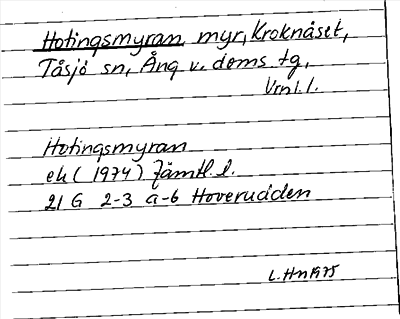 Hotingsmyran, myr, Kroknäset,
Tåsjö sn, Ång. v. doms tg,
Vrnl. l.
Hotingsmyran
ek (1974) Jämtl. l.
21 G 2-3 a-b Hoverudden
L. Hn 1975